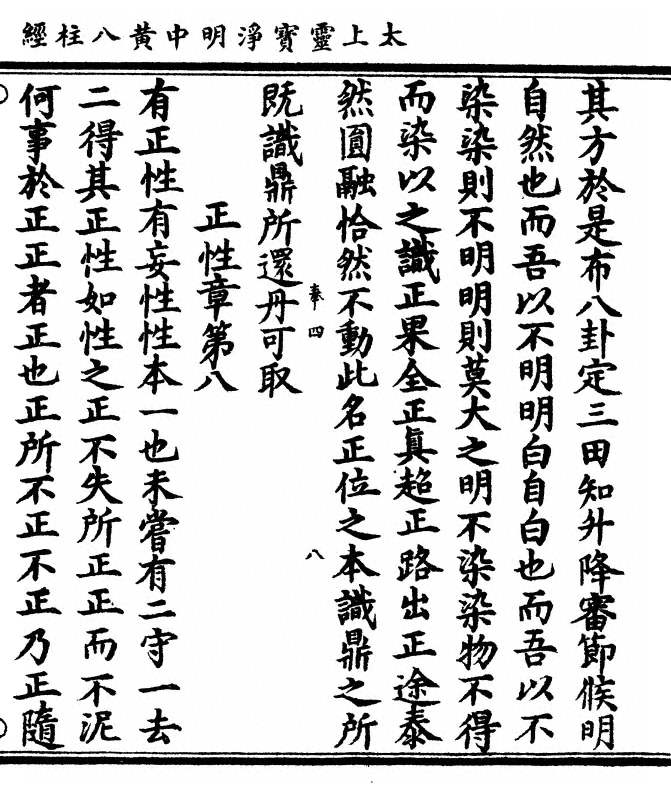 太上靈寶淨明中黃八柱經
其方於是布八卦定三田知升降審節候明
自然也而吾以不明明白自白也而吾以不
染染則不明明則莫大之明不染染物不得
而染以之識正果全正眞超正路出正途泰
然圓融恰然不動此名正位之本識鼎之所
奉四 八
既識鼎所還丹可取
正性章第八
有正性有妄性性本一也未嘗有二守一去
二得其正性如性之正不失所正正而不泥
何事於正正者正也正所不正不正乃正隨